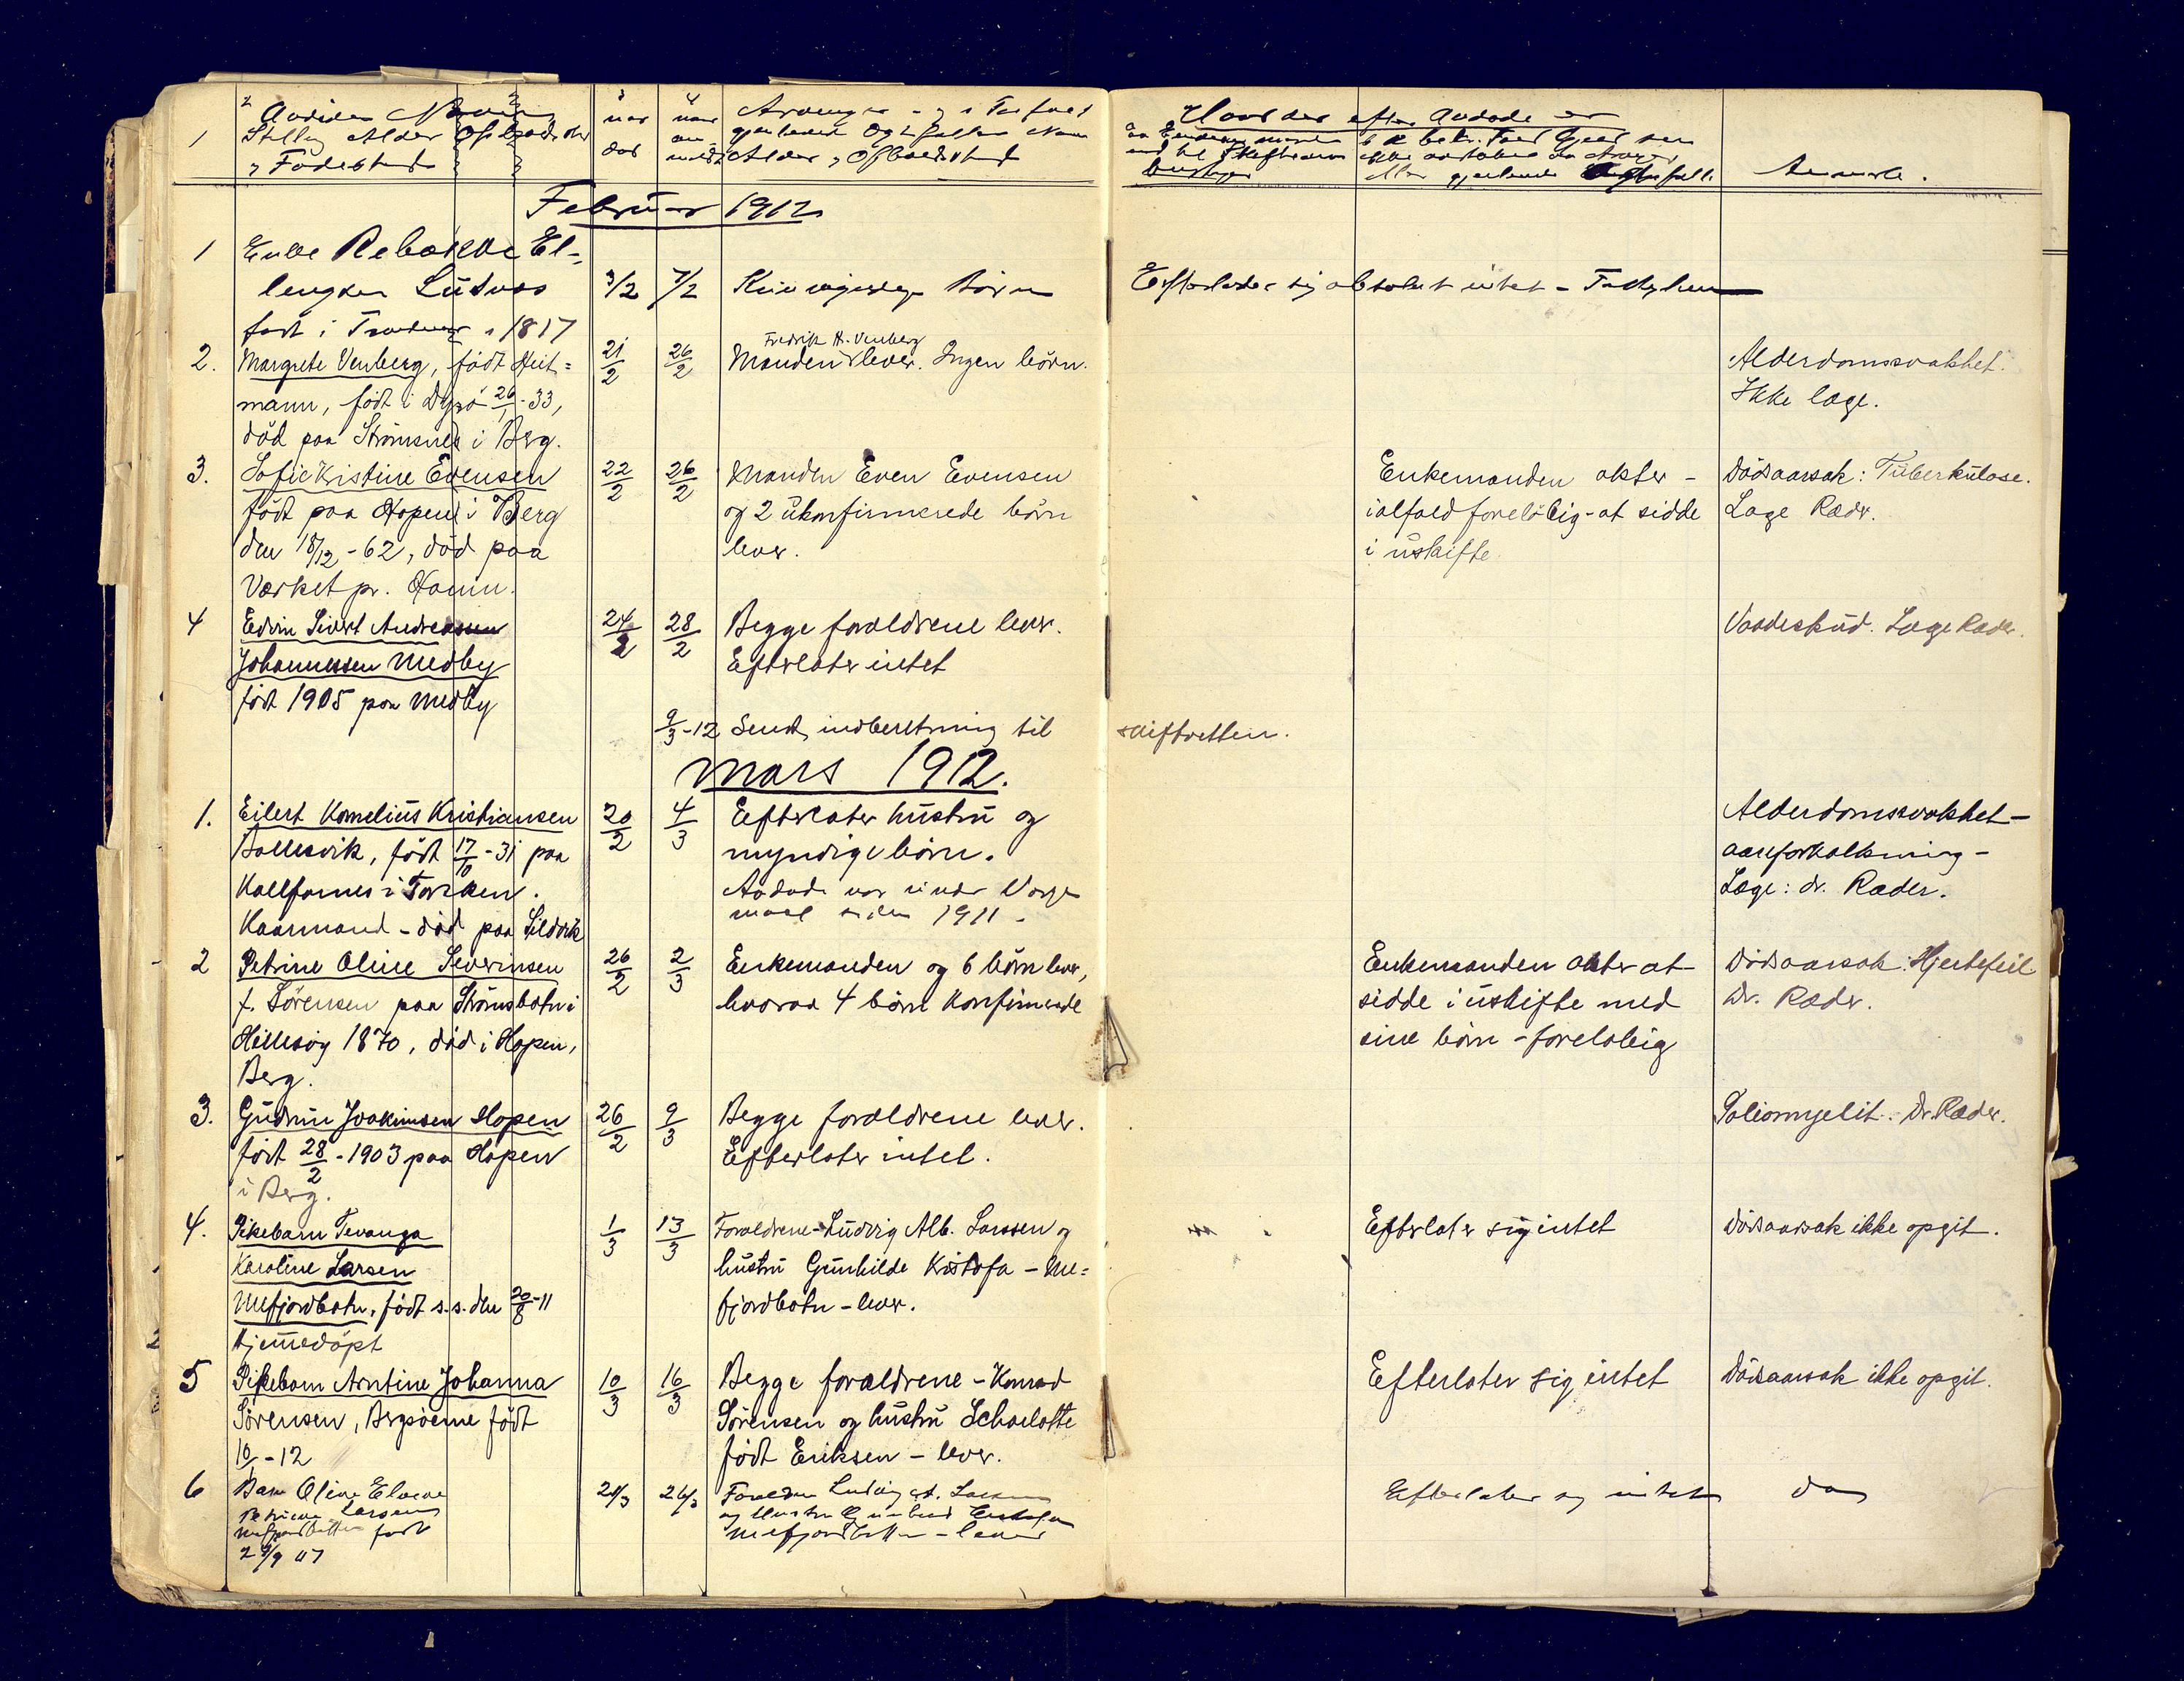 1
2
3
4
Stilling Alder
når død
Alder, Opholdsted
efter Avdøde er
Anmerk.
Februar 1912
1 Enke Rebekke El-
lengsen
født i 1817
3/2 7/2 Kun myndige Børn
Efterlader sig absolut intet -
2. Margrete Venberg, født Heit=
mann, født i Dyrø 26/1 - 33,
død paa Strømsnes i Berg.
21/2 26/2 Fredrik H. Venberg
Manden lever. Ingen børn.
Alderdomssvakhet.
Ikke læge.
3. Sofie Kristine Evensen
født paa Hopen i Berg
den 18/12 - 62, død paa
Værket pr. Hamn.
22/2 26/2 Manden Even Evensen
og 2 ukonfirmerede børn
lever.
Enkemanden akter -
ialfald foreløbig - at sidde
i uskifte
Dødsaarsak: Tuberkulose.
Læge Ræder.
4 Edvin Sivert Andreassen
Johannessen Medby
født 1905 paa Medby
24/2 28/2 Begge forældrene lever.
Efterlater intet
Vaadeskud. Læge Ræder.
9/3 - 12 Sendt indberetning til skifteretten.
Mars 1912.
1. Eilert Kornelius Kristiansen
Ballesvik, født 17/10 - 31 paa
Kallfarnes i Torsken.
Kaarmand - død paa Sildvik
20/2 4/3 Efterlater hustru og
myndige børn.
Avdøde var under Verge
maal siden 1911 -
Alderdomssvakhet -
aareforkalkning -
Læge: dr. Ræder.
2 Petrine Oline Severinsen
f. Sørensen paa Strømsbotn i
Hillesøy 1870, død i Hopen,
Berg.
26/2 2/3 Enkemanden og 6 børn lever,
hvorav 4 børn konfirmerede
Enkemanden akter at
sidde i uskifte med
sine børn - foreløbig
Dødsaarsak: Hjertefeil
Dr. Ræder.
3. Gudrun Joakimsen Hopen
født 28/2 - 1903 paa Hopen
i Berg.
26/2 9/3 Begge forældrene lever.
Efterlater intet.
Poliomyelit. Dr. Ræder.
4. Pikebarn Tevanga
Karoline Larsen
Mefjordbotn, født s.s. den 20/8 - 11
hjemmedøpt
1/3 13/3 Forældrene - Ludvig Alb. Larssen og
hustru Gunhilde Kristofa - Me=
fjordbotn - lever.
Efterlater sig intet
Dødsaarsak ikke opgit.
5 Pikebarn Arntine Johanna
Sørensen, Bergsøerne født
10/1 - 12
10/3 16/3 Begge forældrene - Konrad
Sørensen og hustru Scharlotte
født Eriksen - lever.
Efterlater sig intet
Dødsaarsak ikke opgit.
6 Barn Oline
Larsen
Mefjordbotten født
26/3 Forældre Ludvig A. Larsen
og Hustru
Mefjordbotten - lever
Efterlater sig intet
do